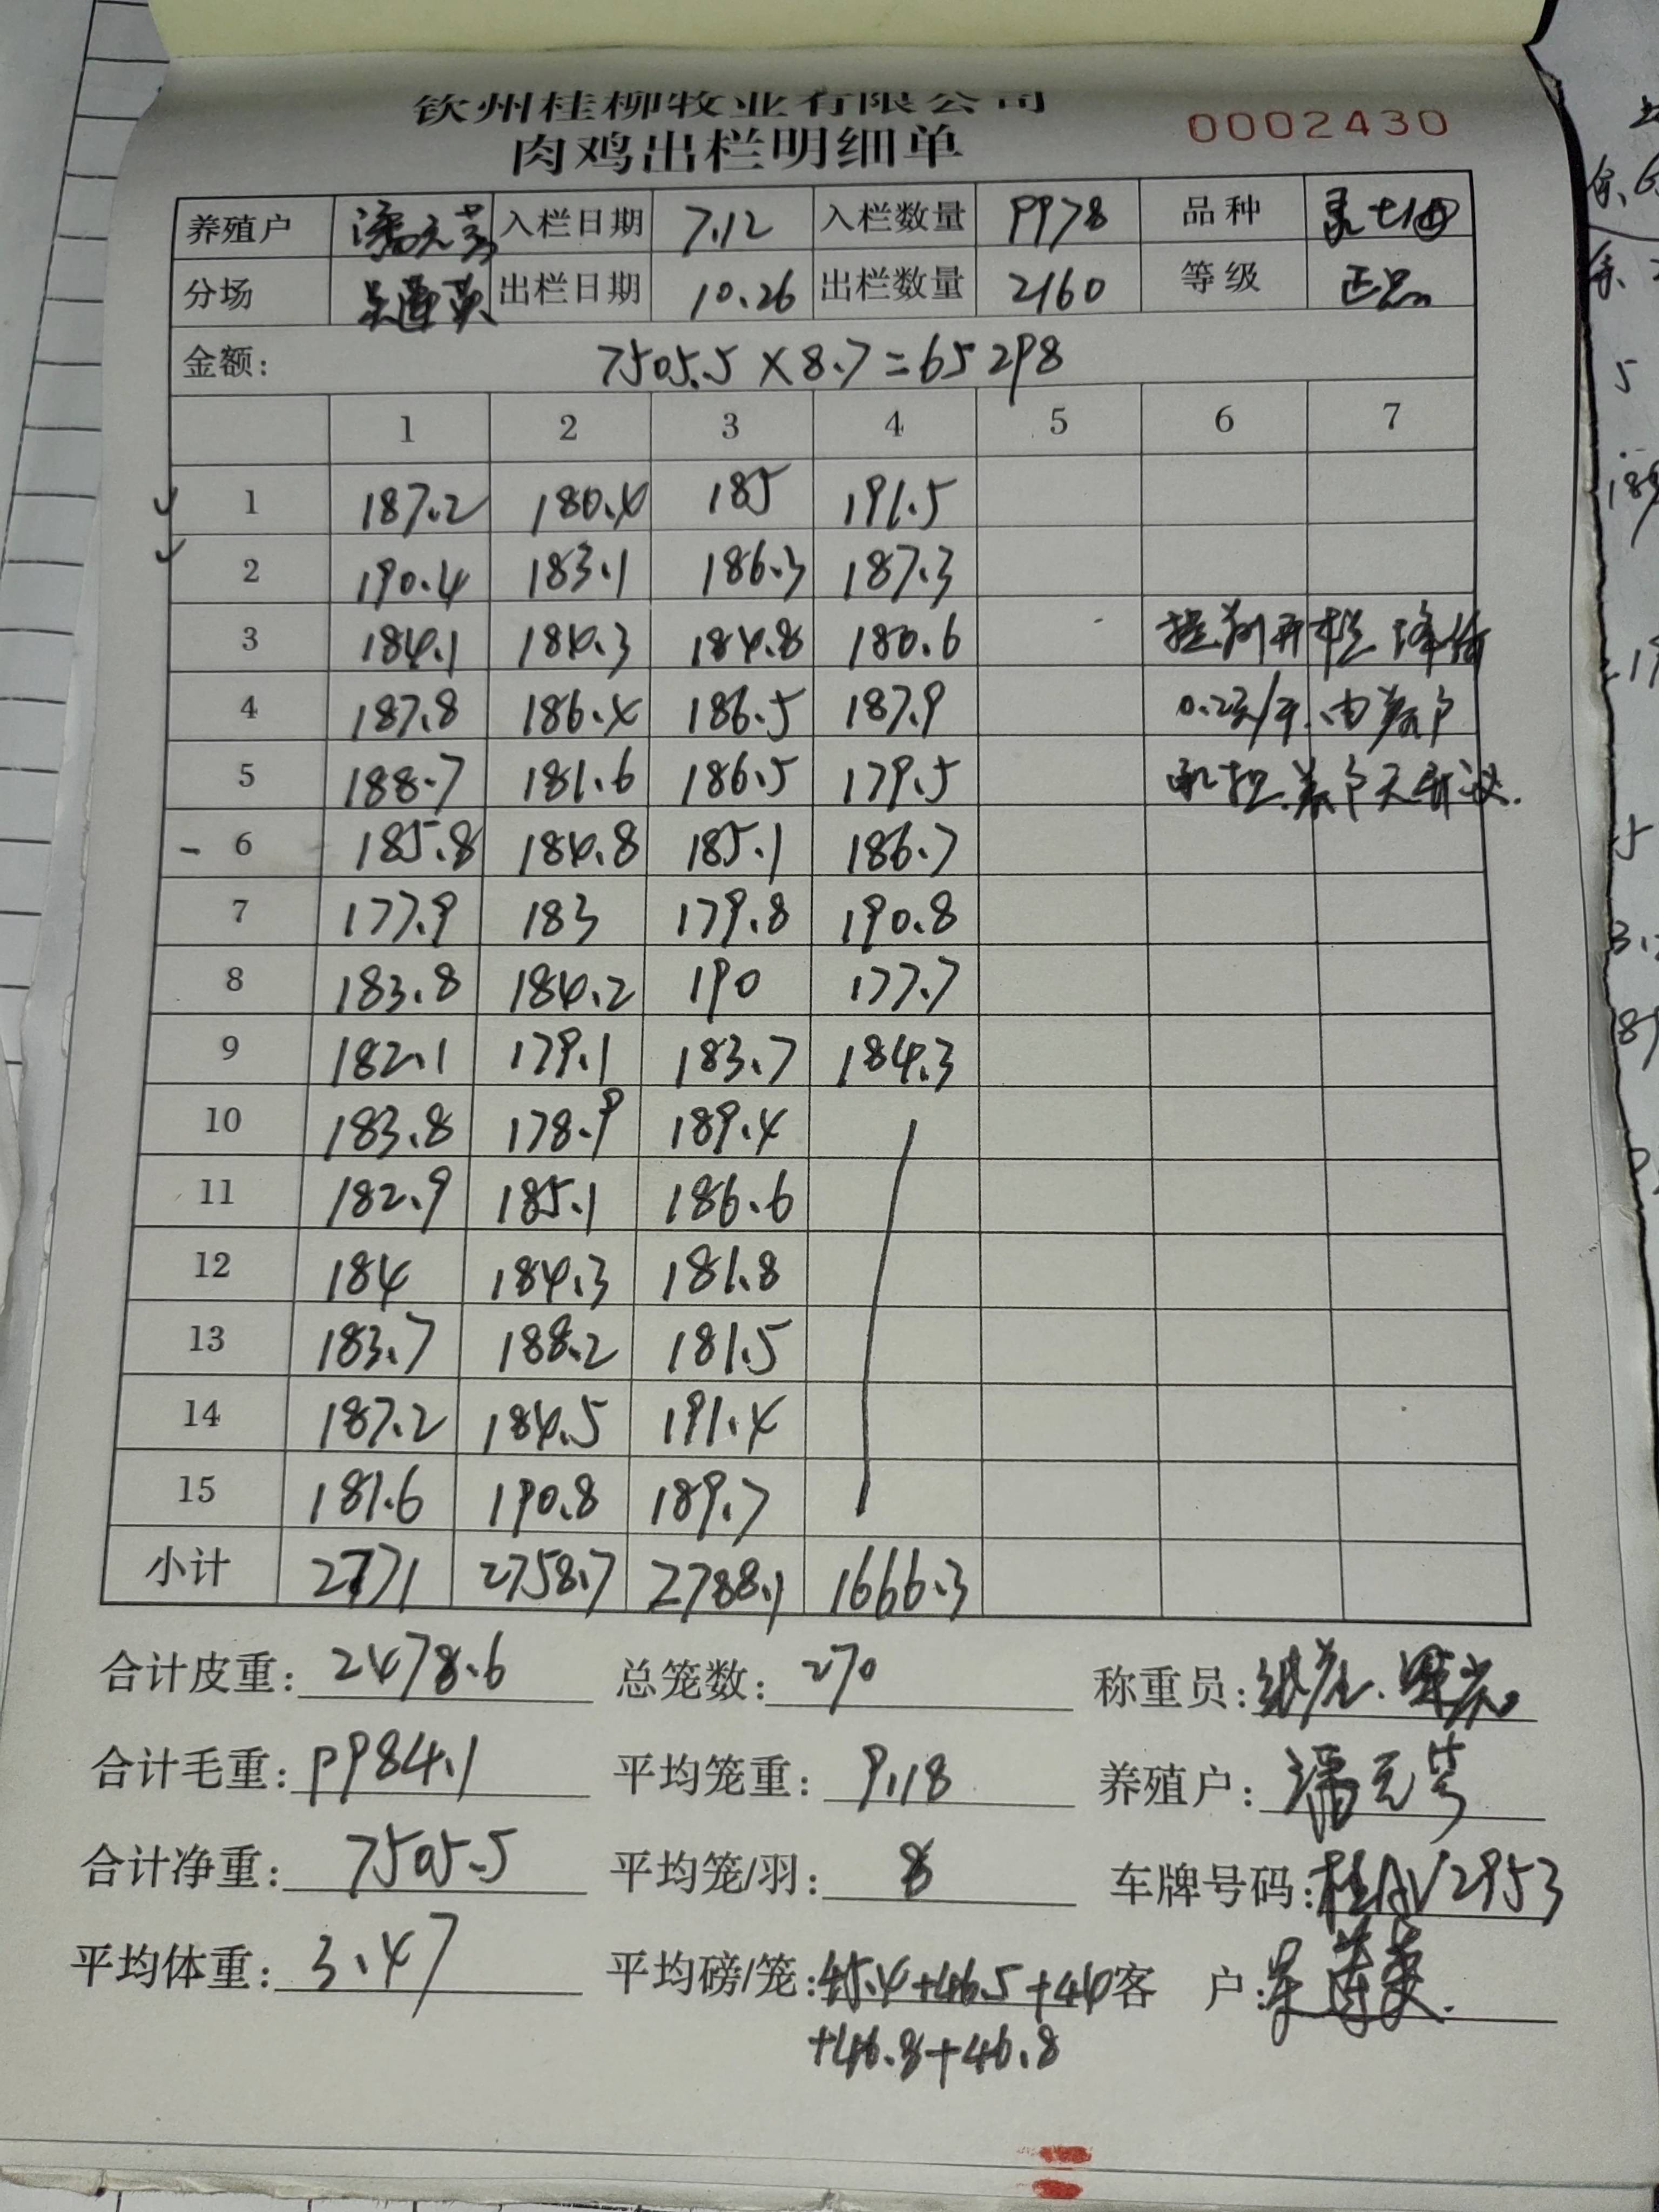 钦州桂柳牧业有限公司
肉鸡出栏明细单 0002430
养殖户 潘元芳 入栏日期 7.12 入栏数量 9978 品种
分场 吴莲英 出栏日期 10.26 出栏数量 2160 等级 正品
金额: 7505.5×8.7=65298
1 2 3 4 5 6 7
1 187.2 180.4 185 191.5
2 190.4 183.1 186.3 187.3
3 184.1 184.3 184.8 180.6 提前开栏降价
4 187.8 186.4 186.5 187.9 0.2元/斤.由养户
5 188.7 181.6 186.5 179.5 承担.养户无异议.
6 185.8 184.8 185.1 186.7
7 177.9 183 179.8 190.8
8 183.8 184.2 190 177.7
9 182.1 179.1 183.7 184.3
10 183.8 178.9 189.4
11 182.9 185.1 186.6
12 184 184.3 181.8
13 183.7 188.2 181.5
14 187.2 184.5 191.4
15 181.6 190.8 189.7
小计 2771 2758.7 2788.1 1666.3
合计皮重: 2478.6 总笼数: 270 称重员:
合计毛重: 9984.1 平均笼重: 9.18 养殖户: 潘元芳
合计净重: 7505.5 平均笼/羽: 8 车牌号码: 桂AV2953
平均体重: 3.47 平均磅/笼: 45.4+46.5+44 客 户: 吴莲英.
+46.8+46.8